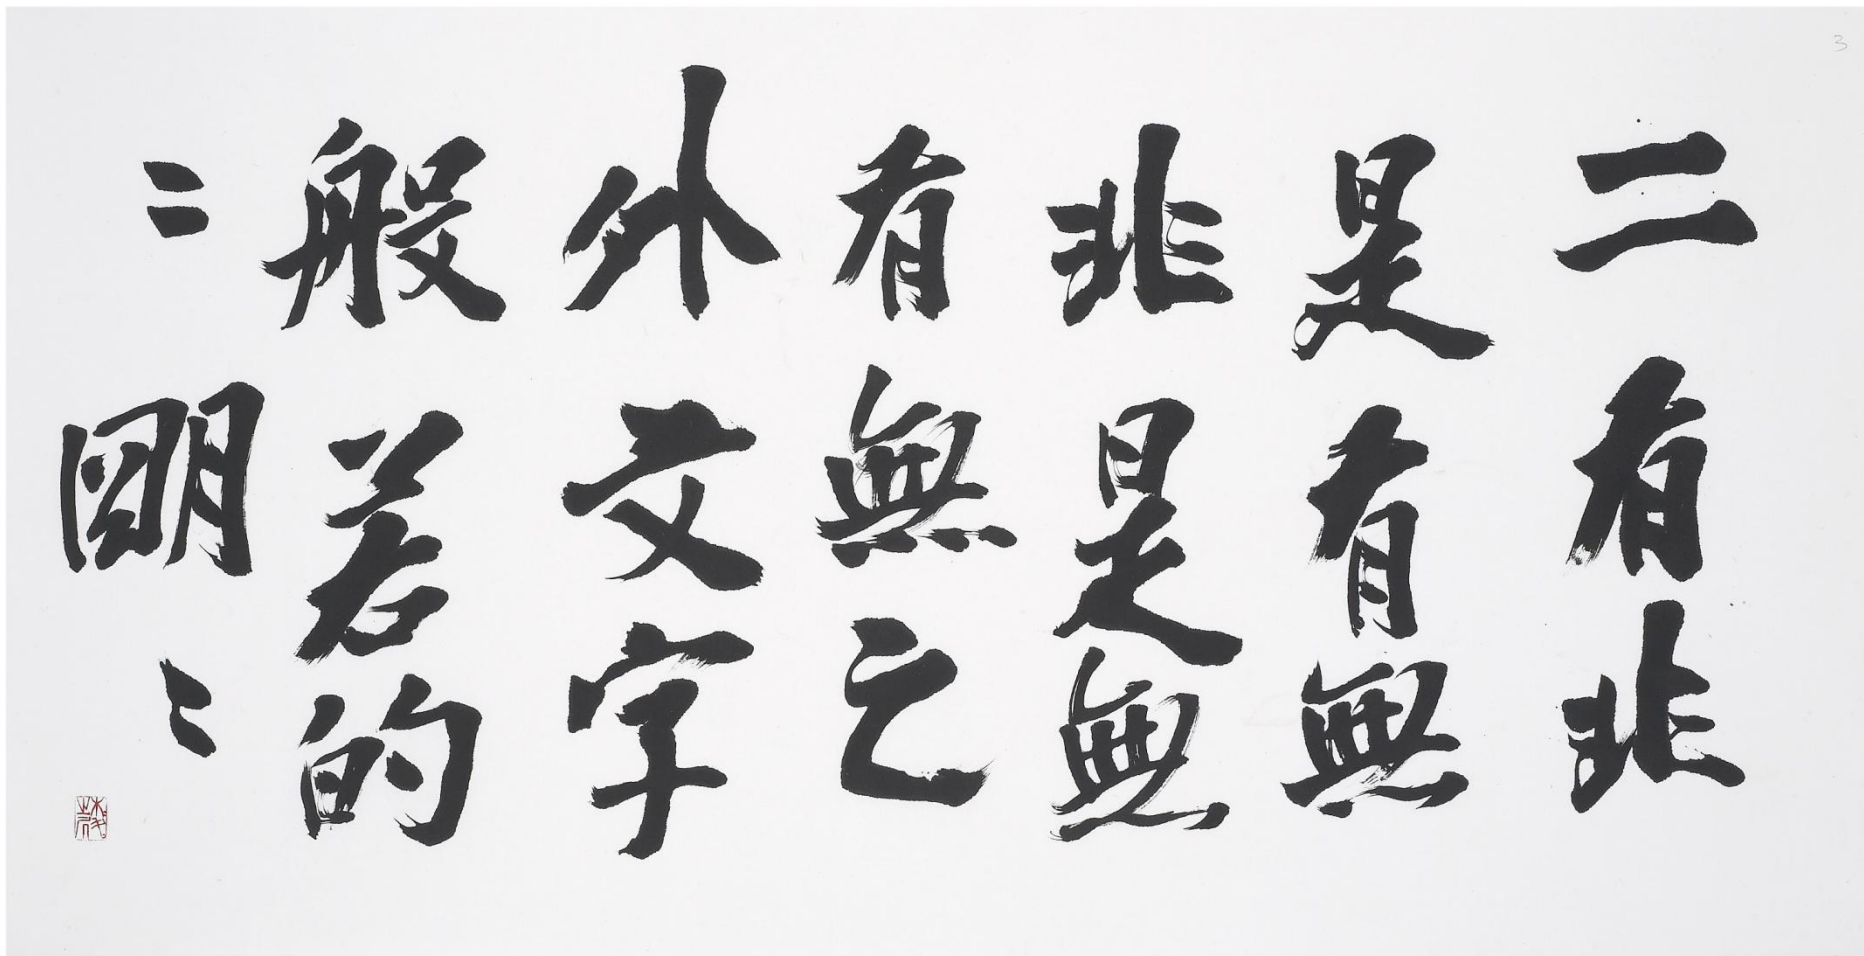 3
二有非
是有無
非是無
有無之
外文字
般若的
〻朙〻